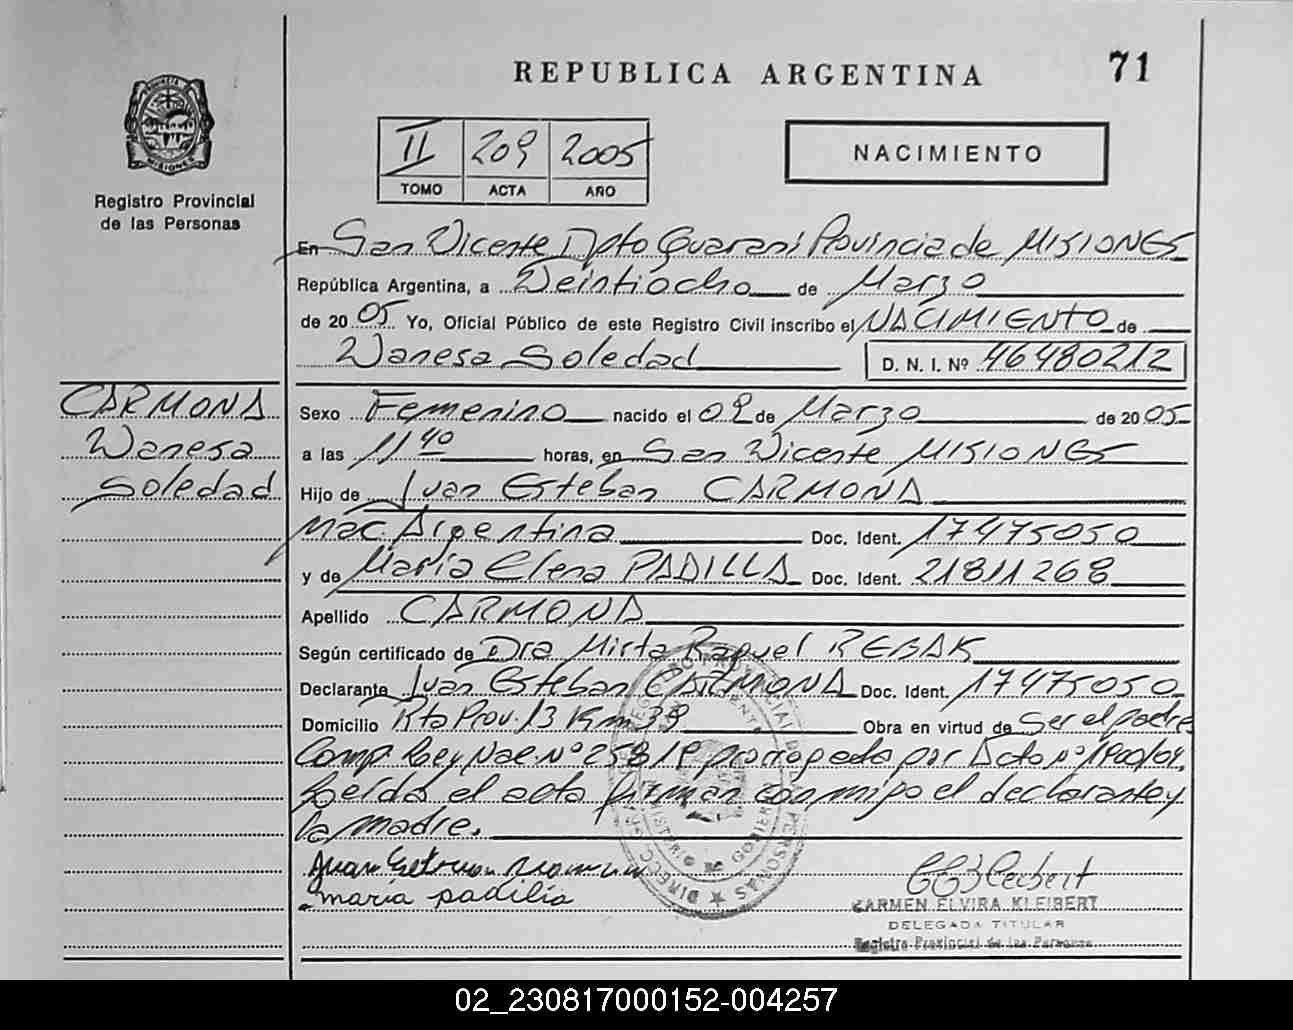 REPUBLICA ARGENTINA
71
MISIONES
Registro Provincial
de las Personas
II 209 2005
TOMO ACTA AÑO
NACIMIENTO
En San Vicente Dpto Guarani Provincia de MISIONES
República Argentina, a Veintiocho de Marzo
de 2005 Yo, Oficial Público de este Registro Civil inscribo el NACIMIENTO de
Wanesa Soledad D. N. I. Nº 46480212
CARMONA
Wanesa
Soledad
Sexo Femenino nacido el 09 de Marzo de 2005
a las 11 40 horas, en San Vicente MISIONES
Hijo de Juan Esteban CARMONA
Nac. Argentina Doc. Ident. 17475050
y de María Elena PADILLA Doc. Ident. 21811268
Apellido CARMONA
Según certificado de Dra Mirta Raquel REBAK
Declarante Juan Esteban CARMONA Doc. Ident. 17475050
Domicilio Rta Prov. 13 Km 39 Obra en virtud de Ser el padre
Comp Ley Nac. Nº prorrogada por Dcto nº
Leída el acta firman conmigo el declarante y
la madre.
Juan
maria padilla
CARMEN ELVIRA KLEIBERT
DELEGADA TITULAR
Registro Provincial de las Personas
02_230817000152-004257